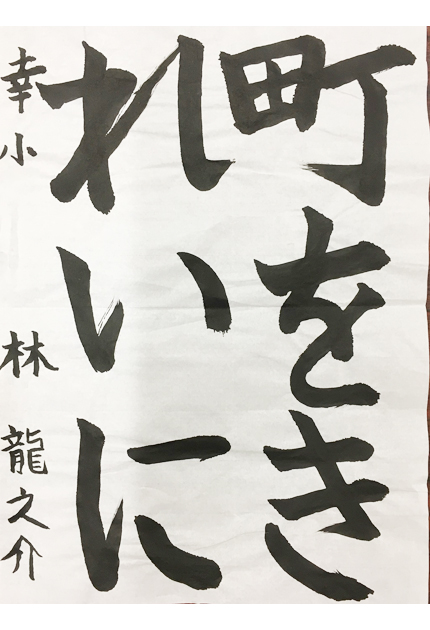 町をき
れいに
幸小 林 龍之介